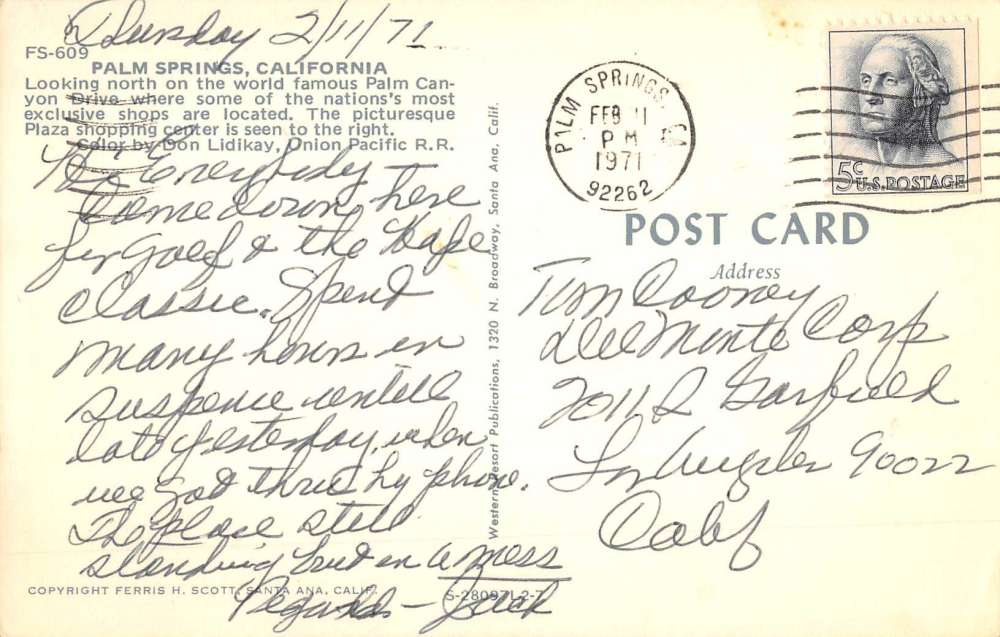 Thursday 2/11/71
FS-609
PALM SPRINGS, CALIFORNIA
Looking north on the world famous Palm Can-
yon Drive where some of the nations's most
exclusive shops are located. The picturesque
Plaza shopping center is seen to the right.
Color by Don Lidikay, Union Pacific R.R.
Hi Everybody -
Came down here
for golf & the Hope
Classic. Spent
many hours in
suspence untill
late yesterday, when
we got thru by phone.
The place still
standing but in a mess
Regards - Jack
COPYRIGHT FERRIS H. SCOTT, SANTA ANA, CALIF.
S-28097L2-7
Western Resort Publications, 1320 N. Broadway, Santa Ana, Calif.
PALM SPRINGS, CA
FEB 11
PM
1971
92262
5c U.S. POSTAGE
POST CARD
Address
Tim Cooney
Del Monte Corp
2011 S Garfield
Los Angeles 90022
Calif